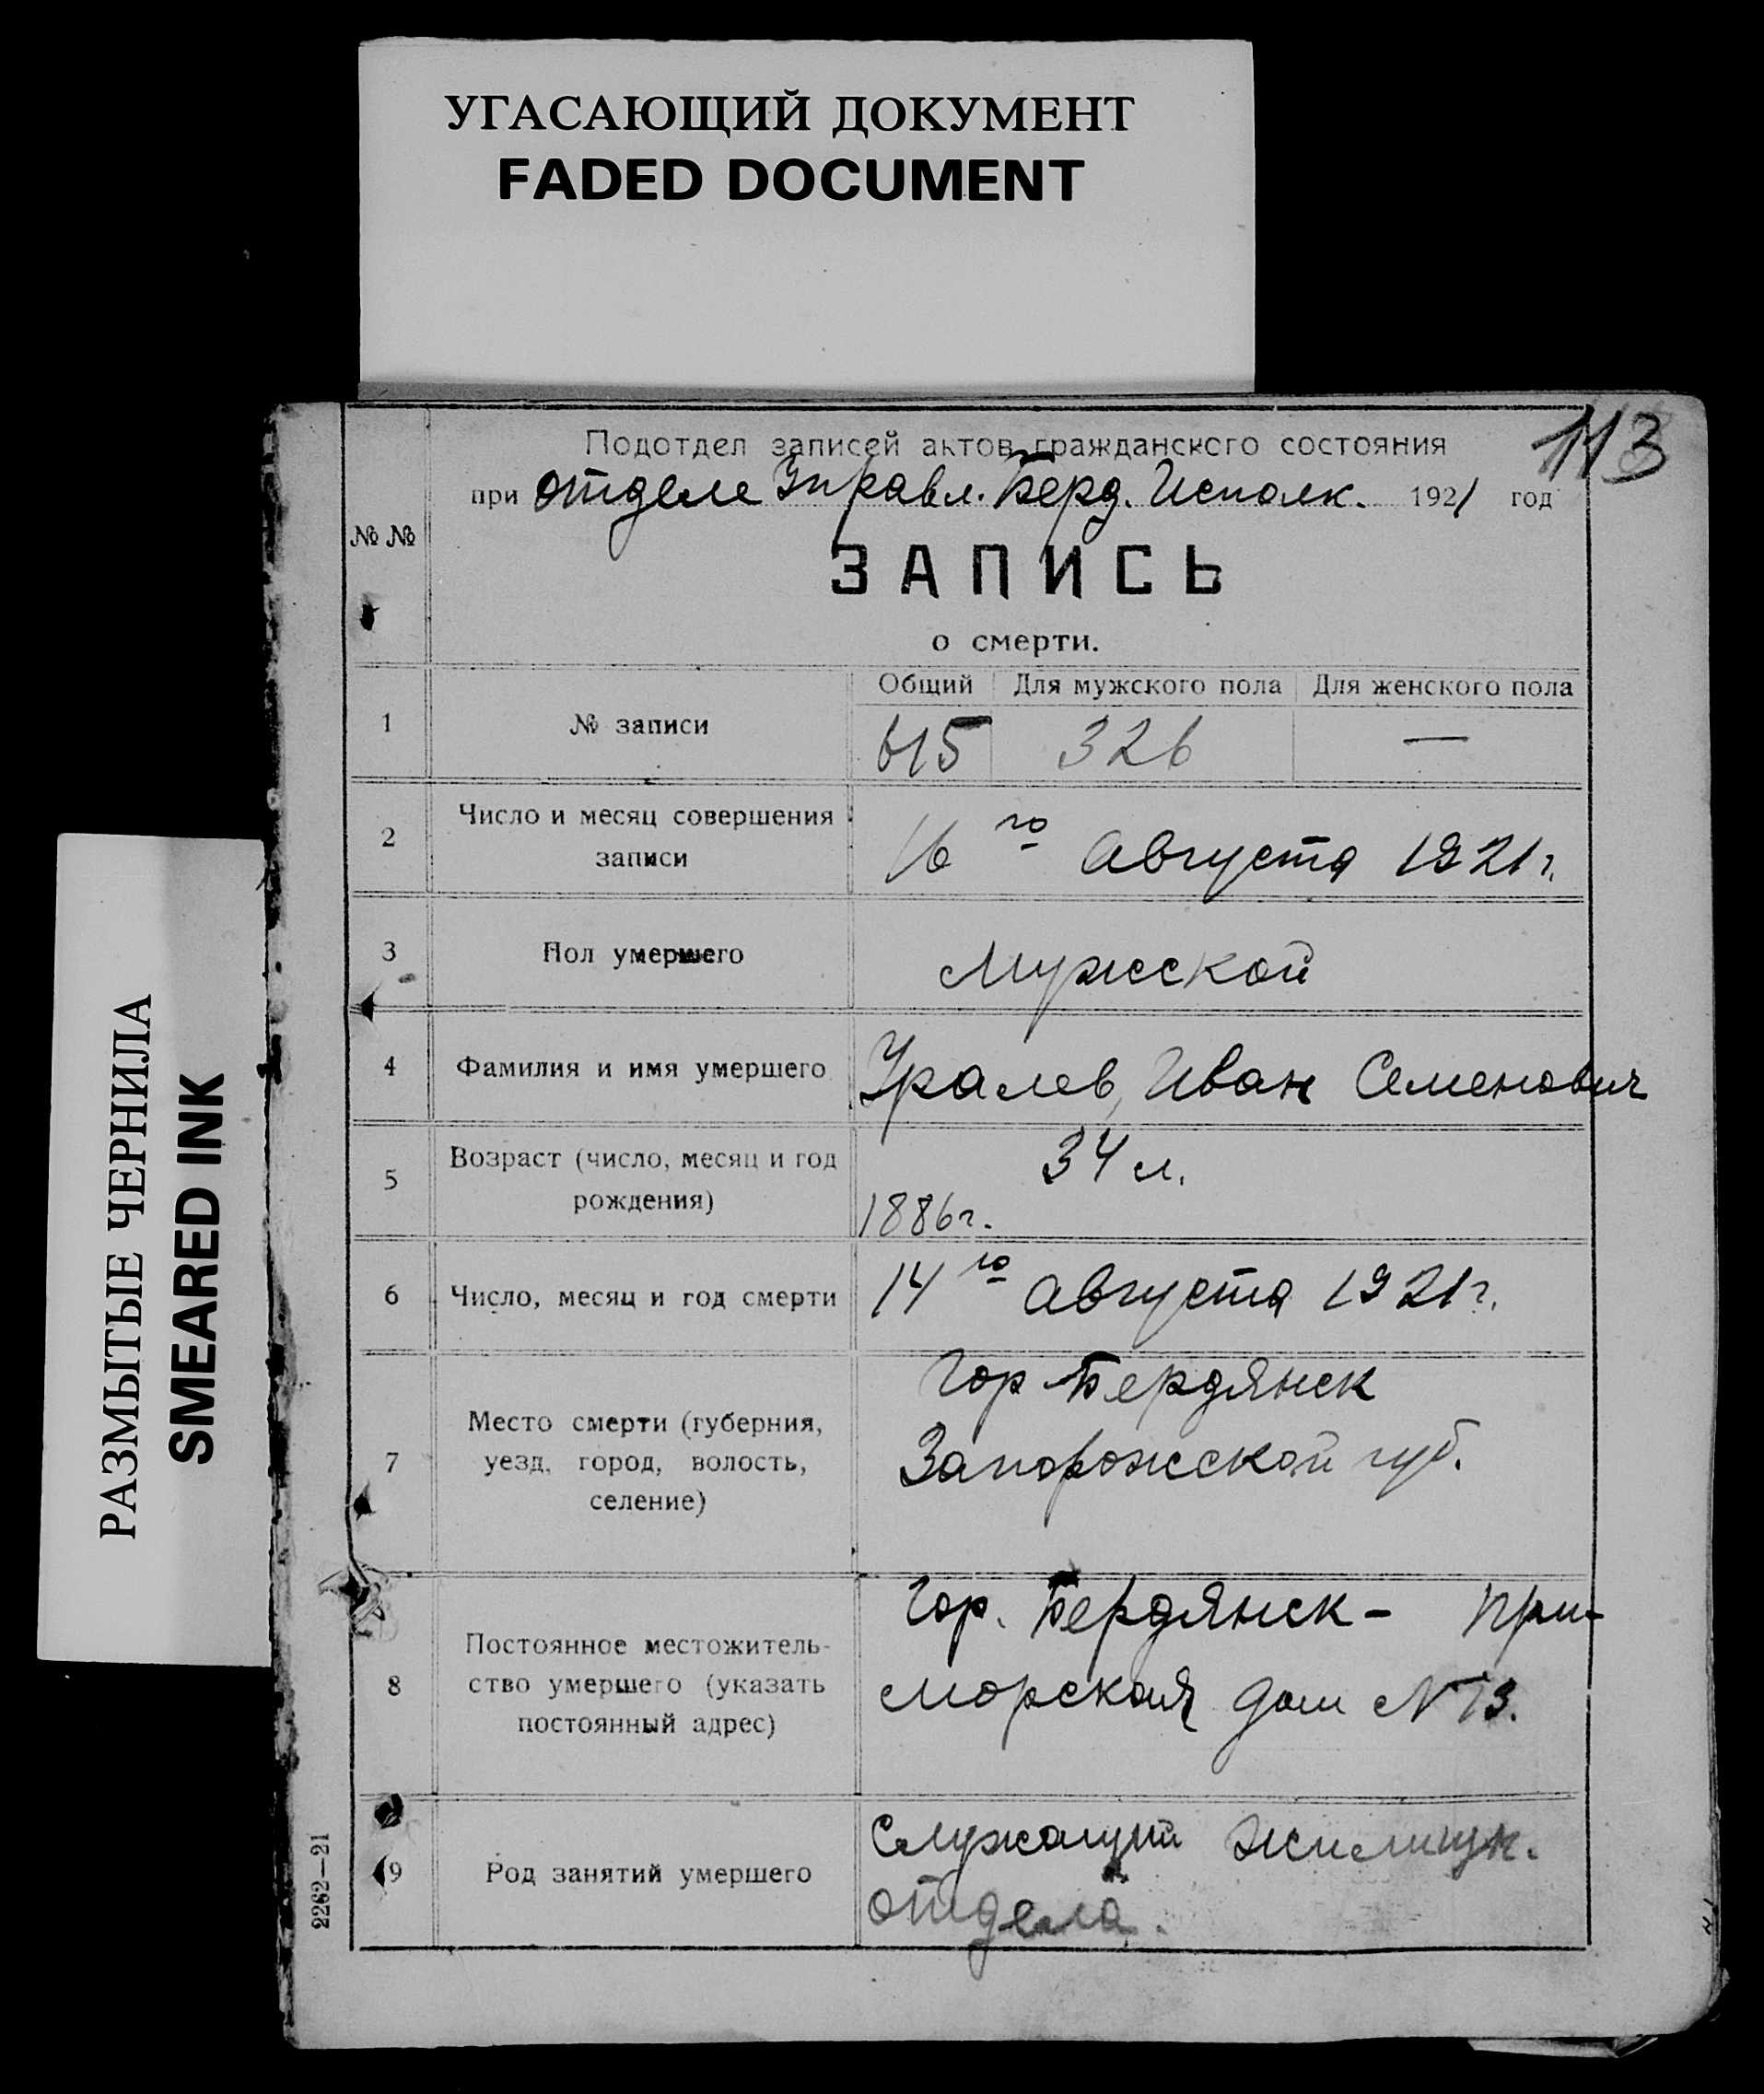 УГАСАЮЩИЙ ДОКУМЕНТ
FADED DOCUMENT
РАЗМЫТЫЕ ЧЕРНИЛА
SMEARED INK
113
Подотдел записей актов гражданского состояния
при отделе Управл. Берд. Исполк. 1921 год
№ №
ЗАПИСЬ
о смерти.
Общий Для мужского пола Для женского пола
1 № записи 615 326 —
2 Число и месяц совершения
записи
16го августа 1921 г.
3 Пол умершего мужской
4 Фамилия и имя умершего Уралев, Иван Семенович
5 Возраст (число, месяц и год
рождения)
34 л.
1886 г.
6 Число, месяц и год смерти 14го августа 1921 г.
7 Место смерти (губерния,
уезд, город, волость,
селение)
Гор Бердянск
Запорожской губ.
8 Постоянное местожитель-
ство умершего (указать
постоянный адрес)
Гор. Бердянск - При-
морская дом № 13.
9 Род занятий умершего
Служащий жилищн.
отдела.
2262—21